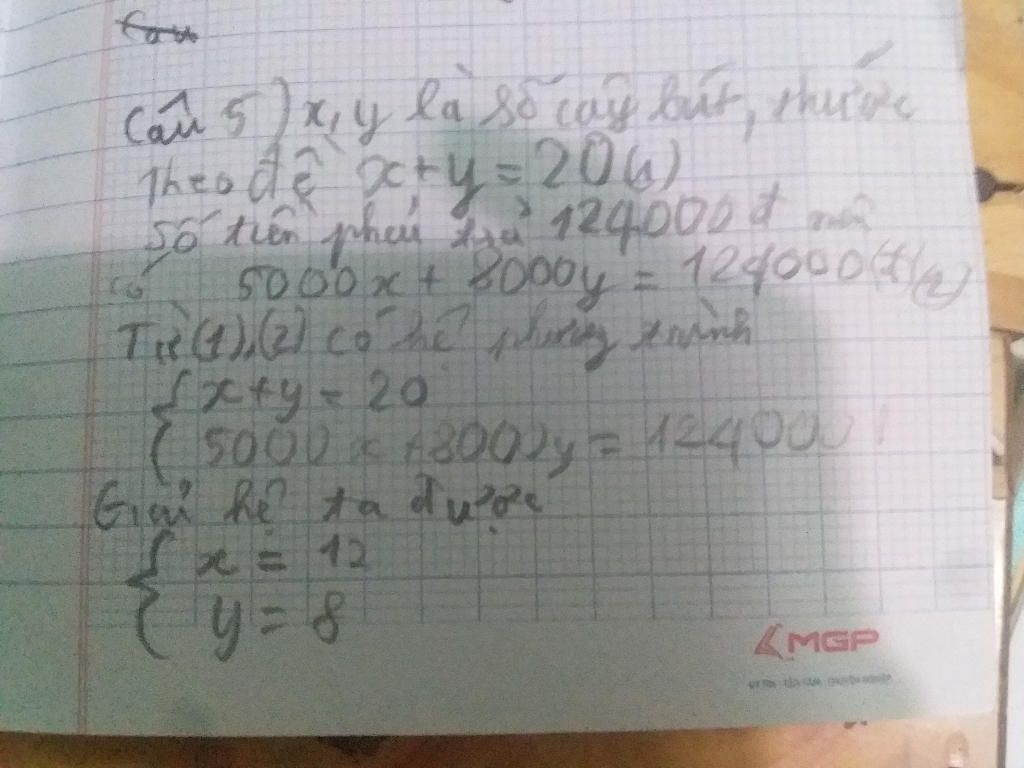 Câu 5) x, y là số cây bút, thước
Theo đề x + y = 20 (1)
Số tiền phải trả 124000đ nên
có 5000x + 8000y = 124000 (đ) (2)
Từ (1), (2) có hệ phương trình
{ x + y = 20
5000x + 8000y = 124000
Giải hệ ta được
{ x = 12
y = 8
MGP